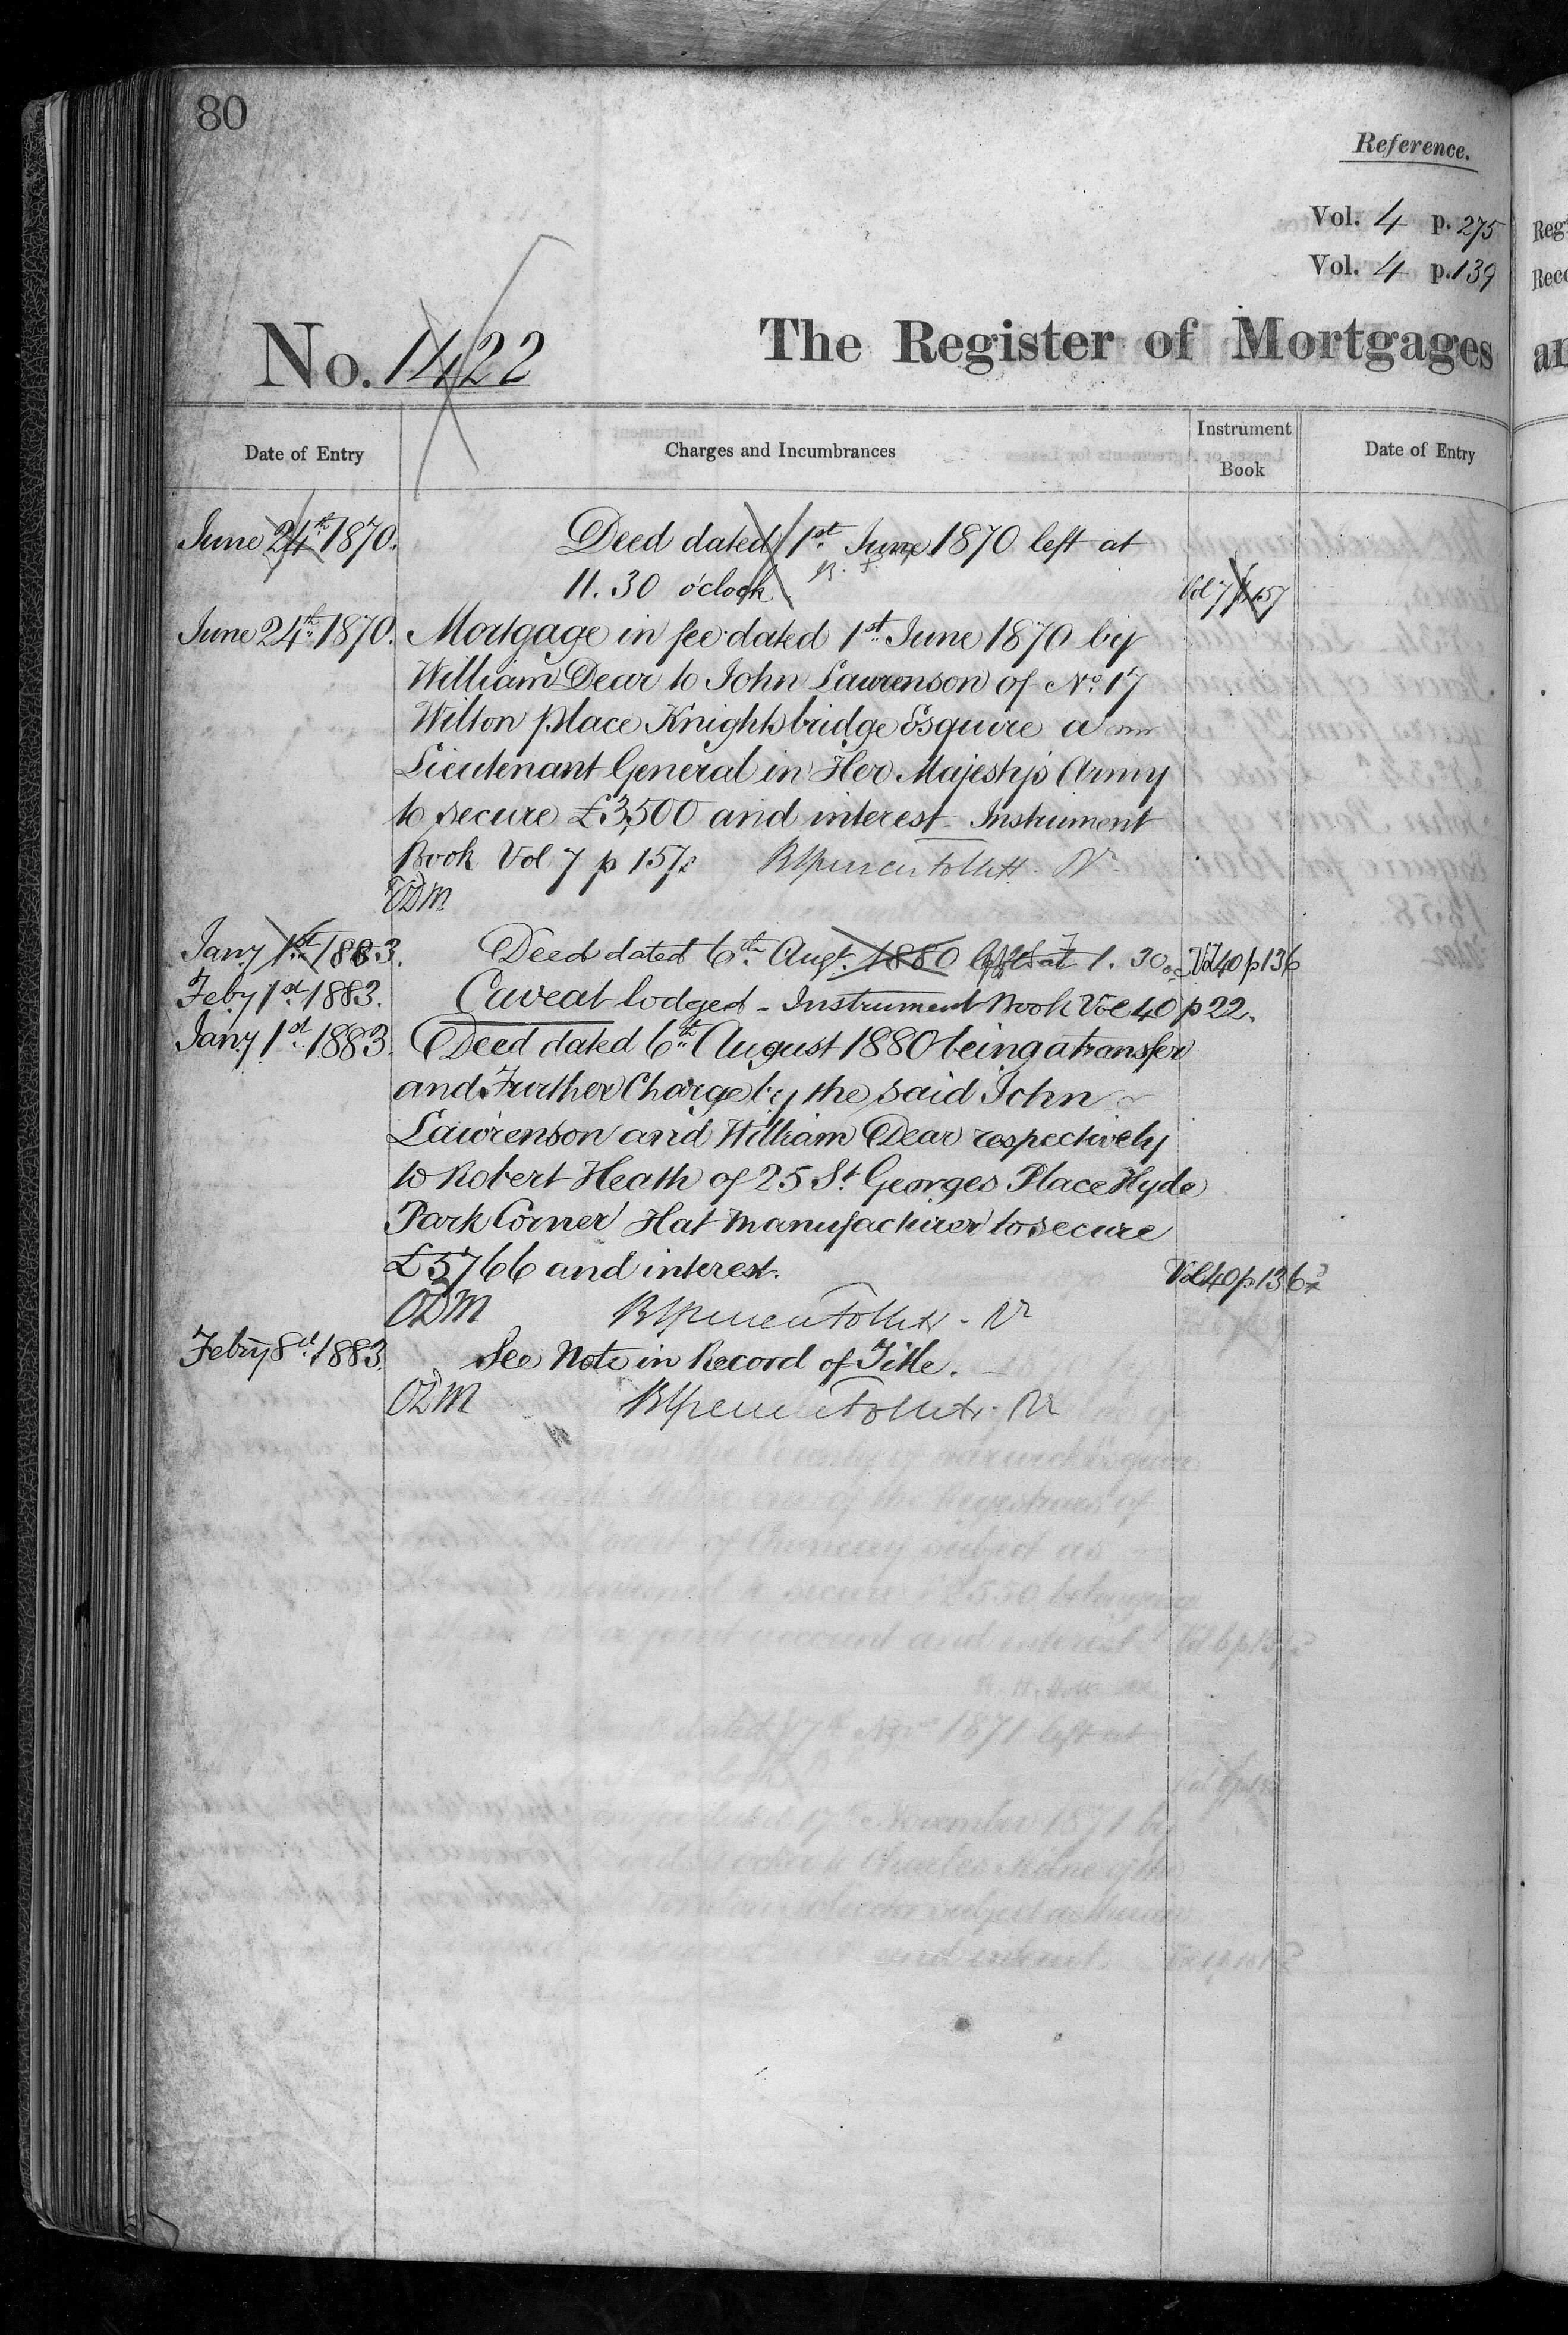 80
Reference.
Vol. 4 p. 275
Vol. 4 p. 139
No. 1422
The Register of Mortgages
Date of Entry
Charges and Incumbrances
Instrument
Book
Date of Entry
June 24th 1870. Deed dated 1st June 1870 left at
11.30 o'clock. Vol 7 p 157
June 24th 1870. Mortgage in fee dated 1st June 1870 by
William Dear to John Lawrenson of No. 17
Wilton place Knightsbridge Esquire a
Lieutenant General in Her Majesty's Army
to secure £3,500 and interest - Instrument
Book Vol 7 p 157
ODM
Jany 1st 1883. Deed dated 6th Augt. 1880 left at 1.30 Vol 40 p 136
Feby 1st 1883. Caveat lodged - Instrument Book Vol 40 p 22.
Jany 1st 1883. Deed dated 6th August 1880 being a transfer
and Further Charge by the said John
Lawrenson and William Dear respectively
to Robert Heath of 25 St Georges Place Hyde
Park Corner Hat Manufacturer to secure
£5766 and interest. Vol 40 p 136
ODM
Febry 8th 1883. See Note in Record of Title.
ODM
Reg
Reco
an